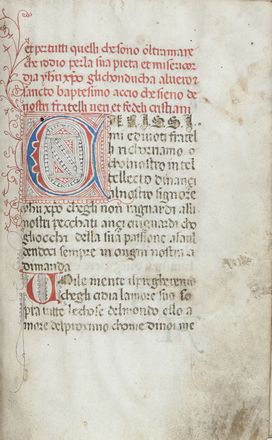 et per tutti quelli che sono oltramare
che iddio per la sua pieta et misericor
dia yhu xpo gli conducha al vero et
sancto baptesimo accio che sieno de
nostri fratelli veri et fedeli cristiani
CARISSI
mi e divoti fratel
li ritorniamo o
chol nostro intel
lecto dinanzi
al nostro signore
yhu xpo che gli non raguardi alli
nostri pecchati anzi riguardi cho
gliocchi della sua passione asaul
dendoci sempre in ongni nostra a
dimanda
Umile mente si preghereno
chegli ci dia lamore suo so
pra tutte le chose del mondo ello a
more del proximo chome di noi me